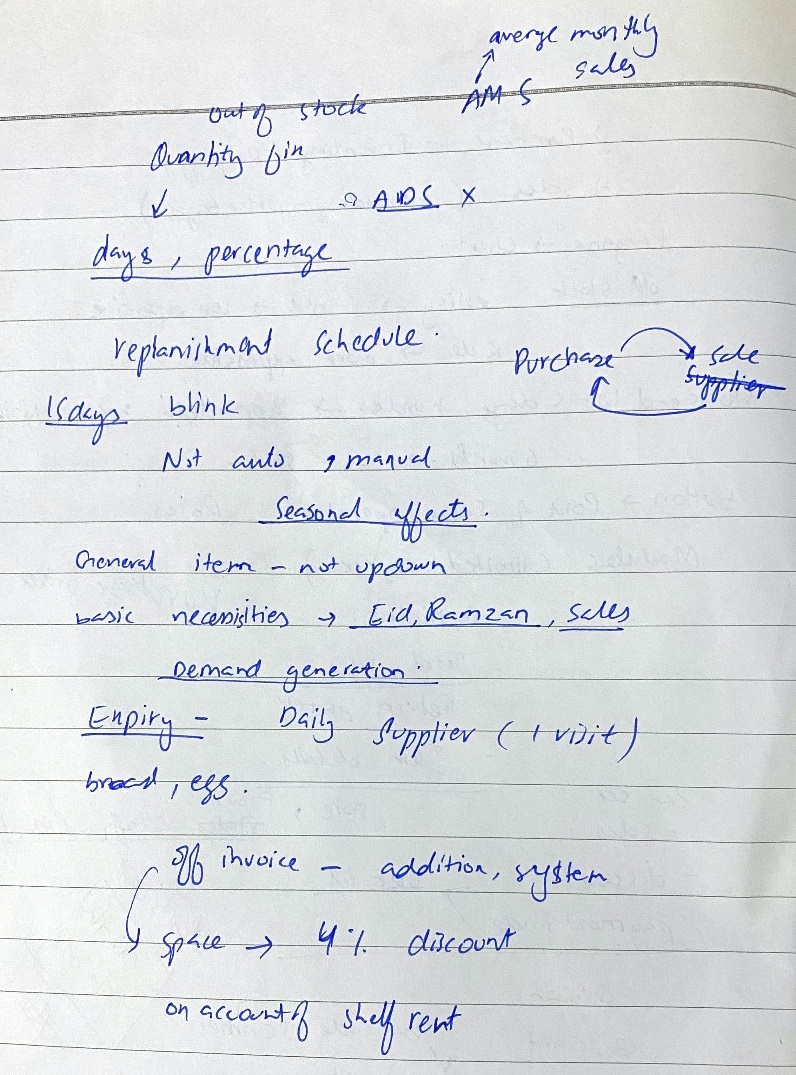 averge monthly
sales
AMS
out of stock
Quantity fin
ADS x
days, percentage
replanishment schedule.
Purchase sale
supplier
15days blink
Not auto, manual
Seasonal effects.
General item - not updown
basic necessities → Eid, Ramzan, sales
Demand generation.
Expiry - Daily Supplier (1 visit)
bread, egg.
off invoice - addition, system
space → 4% discount
on account of shelf rent